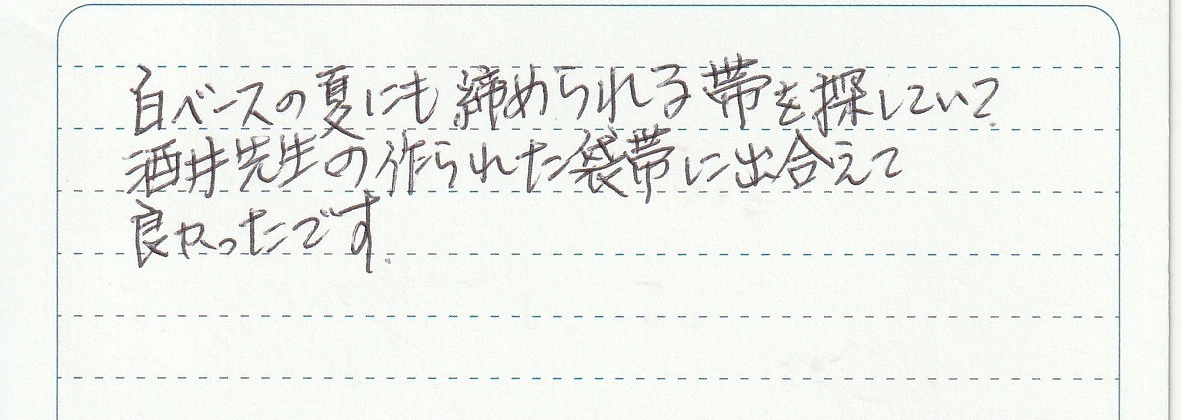 白ベースの夏にも締められる帯を探していて
酒井先生の作られた袋帯に出合えて
良かったです.